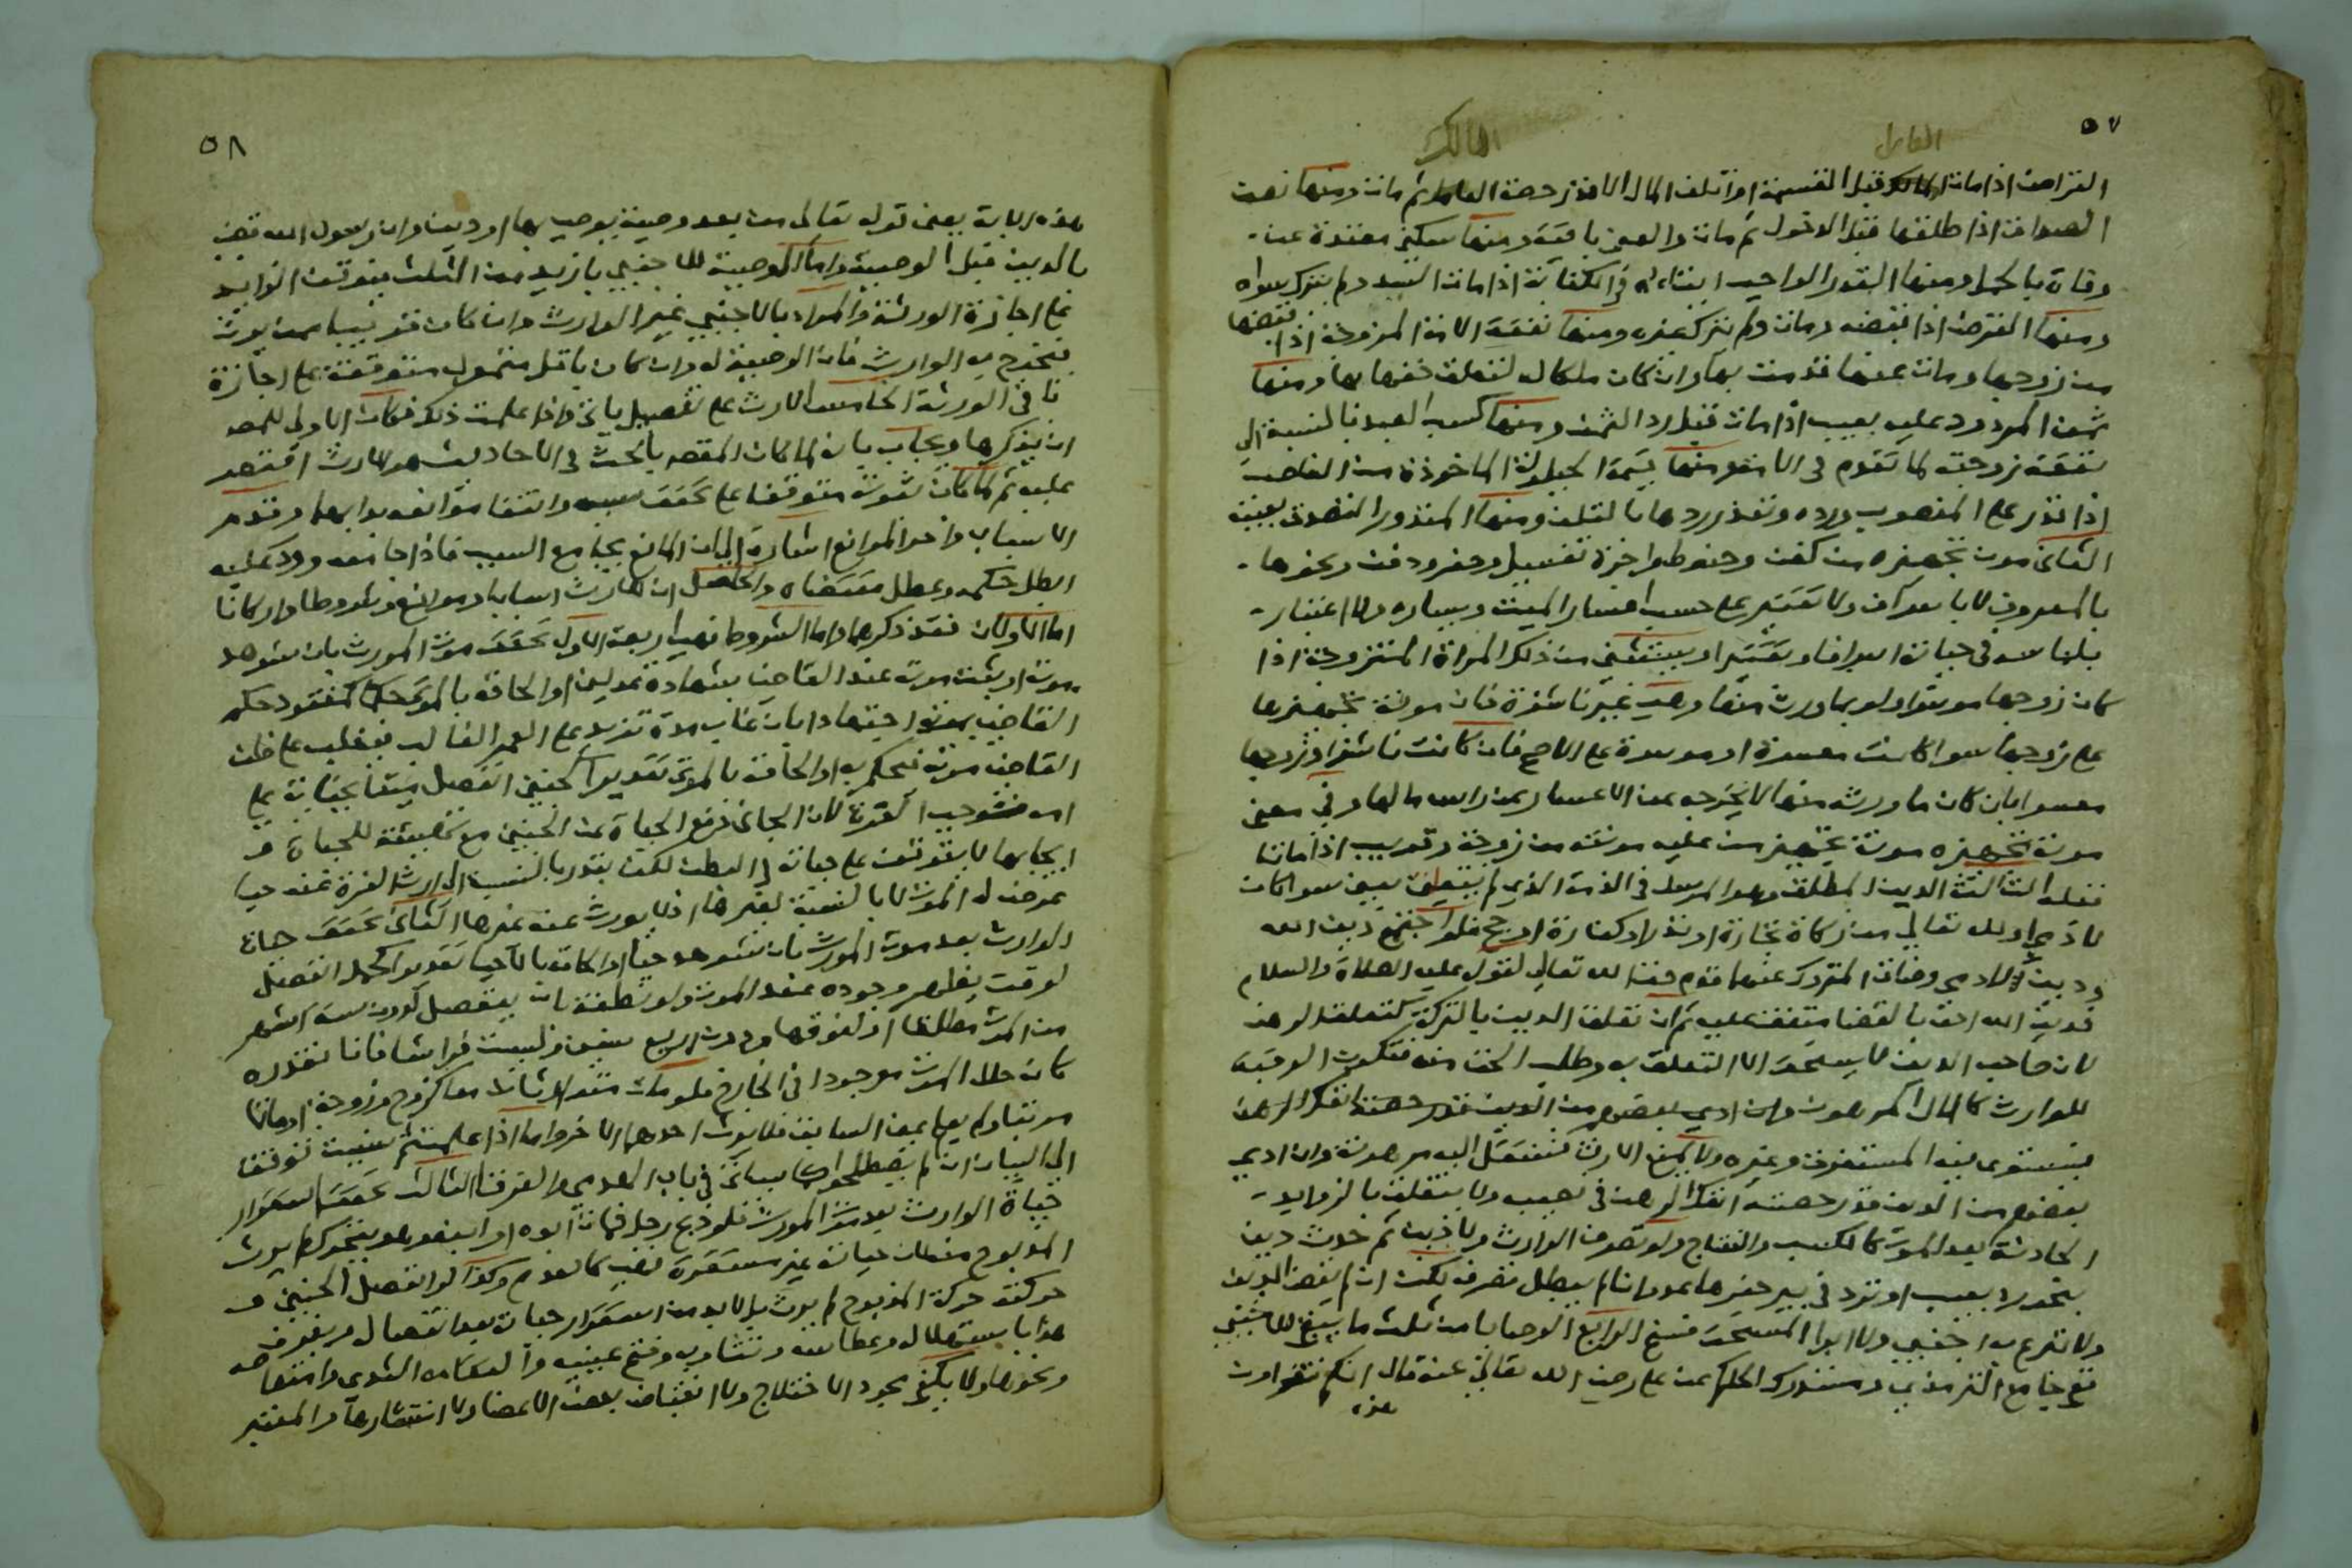 ٥٧
العامل
المالك
القراض اذا مات المالك قبل القسمة او اتلف المال الا قدر حصة العامل ثم مات ومنها نصف
الصداق اذا طلقها قبل الدخول ثم مات والعين باقية ومنها سكنى معتدة عن
وفاة بالحمل ومنها القدر الواجب ايتاءه في الكتابة اذا مات السيد ولم يترك سواه
ومنها القرض اذا قبضه ومات ولم يترك غيره ومنها نفقة الامة المزوجة اذا قبضها
من زوجها ومات عنها قدمت بها وان كان ملكا له لتعلق حقها بها ومنها
ثمن المردود عليه بعيب اذا مات قبل رد الثمن ومنها كسب العبد بالنسبة الى
نفقة زوجته كما تقدم في الامة ومنها قيمة الحيلولة الماخوذة من الغاصب
اذا قدر على المغصوب ورده وتعذر ردها بالتلف ومنها المنذور التصدق بعينه
الثاني مون تجهيزه من كفن وحنوط واجرة تغسيل وحفر ودفن ونحوها
بالمعروف لا باسراف ولا تقتير على حسب اعسار الميت ويساره ولا اعتبار
بلباسه في حياته اسرافا وتقتيرا ويستثنى من ذلك المراة المتزوجة اذا
كان زوجها موسرا ولو بما ورث منها وهي غير ناشزة فان مونة تجهيزها
على زوجها سوا كانت معسرة او موسرة على الاصح فان كانت ناشزا او زوجها
معسرا بان كان ما ورثه منها لا يخرجه عن الاعسار فمن راس مالها وفي معنى
مونة تجهيزه مونة تجهيز من عليه مونته من زوجة وقريب اذا ماتا
قبله الثالث الدين المطلق وهو المرسل في الذمة الذي لم يتعلق بعين سوا كان
لادمي او لله تعالى من زكاة تجارة او نذر او كفارة او حج فلو اجتمع دين الله
ودين الادمي وضاق المتروك عنهما قدم حق الله تعالى لقوله عليه الصلاة والسلام
فدين الله احق بالقضا متفق عليه ثم ان تعلق الدين بالتركة كتعلق الرهن
لان صاحب الدين لا يستحق الا التعلق به وطلب الحق منه فتكون الرقبة
للوارث كالمال المرهون وان ادى بعضهم من الدين قدر حصته انفك الرهن
فيستوي فيه المستغرق وغيره ولا يمنع الارث فتنتقل اليه مرهونة وان ادى
بعضهم من الدين قدر حصته انفك الرهن في نصيبه ولا يتعلق بالزوايد
الحادثة بعد الموت كالكسب والنتاج ولو تصرف الوارث ولا دين ثم حدث دين
بنحو رد بعيب او ترد في بير حفرها عدوانا لم يبطل تصرفه لكن ان لم يقض الدين
ولا تبرع به اجنبي ولا ابرا المستحق فسخ الرابع الوصايا من ثلث ما يبقى للاجنبي
ففي جامع الترمذي ومستدرك الحاكم عن علي رضي الله تعالى عنه قال انكم تقراون
هذه
٥٨
هذه الاية يعني قوله تعالى من بعد وصية يوصي بها او دين وان رسول الله قضى
بالدين قبل الوصية واما الوصية للاجنبي بازيد من الثلث فيتوقف الزايد
على اجازة الورثة والمراد بالاجنبي غير الوارث وان كان قريبا ممن يورث
فخرج به الوارث فان الوصية له وان كان باقل متمول متوقفة على اجازة
باقي الورثة الخامس الارث على تفصيل ياتي واذا علمت ذلك فكان الاولى للمص
ان يذكرها ويجاب بانه لما كان المقصد بالبحث في الاحاديث هو الارث اقتصر
عليه ثم لما كان ثبوته متوقفا على تحقق سببه وانتفا موانعه بدا بهما وقدم
الاسباب واخر الموانع اشارة الى ان المانع يجامع السبب فاذا جامعه ورد عليه
ابطل حكمه وعطل مقتضاه والحاصل ان للارث اسبابا وموانع وشروطا واركانا
اما الاولان فقد ذكرهما واما الشروط فهي اربعة الاول تحقق موت المورث بان شوهد
موته او يثبت موته عند القاضي بشهادة عدلين او الحاقه بالموتى حكما كمفقود حكم
القاضي بموته اجتهادا بان غاب مدة تزيد على العمر الغالب فيغلب على ظن
القاضي موته فيحكم به او الحاقه بالموتى تقديرا كجنين انفصل ميتا بجناية على
امه فتوجب الغرة لان الجاني دفع الحياة عن الجنين مع تهيئته للحياة و
ايجابها لا يتوقف على حياته في البطن لكن يقدر بالنسبة الى ارث الغرة عنه حيا
عرض له الموت لا بالنسبة لغيرها اذ لا يورث عنه غيرها الثاني تحقق حياة
الوارث بعد موت المورث بان شوهد حيا او الحاقه بالاحيا تقديرا كحمل انفصل
لوقت يظهر وجوده عند الموت ولو نطفة بان ينفصل لدون ستة اشهر
من الموت مطلقا او لفوقها ودون اربع سنين وليست فراشا فانا نقدره
كان حال الموت موجودا في الخارج فلو مات متوارثان معا كزوج وزوجة او ماتا
مرتبا ولم يعلم عين السابق فلا يورث احدهما من الاخر واما اذا علمت ثم نسيت توقفنا
الى البيان ان لم يصطلحوا كما سياتي في باب الهدمى والغرقى الثالث تحقق استقرار
حياة الوارث بعد موت المورث فلو ذبح رجل فمات ابوه او ابنه وهو يتحرك لم يورث
المذبوح منه لان حياته غير مستقرة فهي كالعدم وكذا لو انفصل الجنين و
حركته حركة المذبوح لم يورث بل لا بد من استقرار حياته بعد انفصاله ويعرف
هذا باستهلاله وعطاسه وتثاوبه وفتح عينيه والتقامه الثدي وامتصاصه
ونحوها ولا يكفي مجرد الاختلاج ولا انقباض بعض الاعضا ولا انتشارها والمعتبر